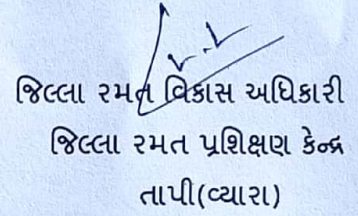 જિલ્લા રમત વિકાસ અધિકારી
જિલ્લા રમત પ્રશિક્ષણ કેન્દ્ર
તાપી(વ્યારા)